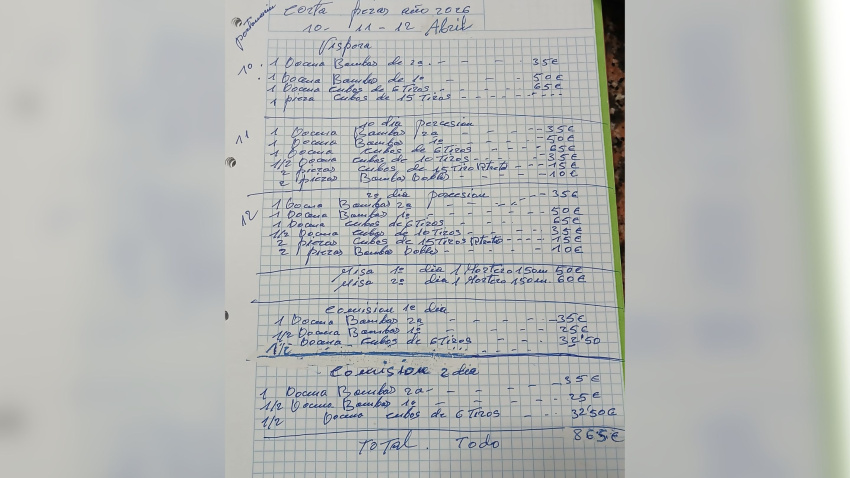 Costa piezas año 2026
10 - 11 - 12 Abril
Vispera
10 . 1 Docena Bombas de 2ª . - - - 35€
. 1 Docena Bombas de 1ª - - - 50€
1 Docena Cubos de 6 Tiros - - - 65€
1 pieza Cubos de 15 Tiros - - - - - -
11 1º dia percesion
1 Docena Bombas 2ª - - - 35€
1 Docena Bombas 1ª - - - 50€
1 Docena Cubos 6 Tiros - - - 65€
1/2 Docena Cubos de 10 Tiros - - - 35€
2 piezas Cubos de 15 Tiros - - 15€
2 piezas Bombas Dobles - - - 10€
12 2º dia percesion
1 Docena Bombas 2ª - - - 35€
1 Docena Bombas 1ª - - - 50€
1 Docena Cubos 6 Tiros 65€
1/2 Docena Cubos de 10 Tiros - - - 35€
2 piezas Cubos de 15 Tiros - - - 15€
2 piezas Bombas Dobles - - - - 10€
Misa 1º dia 1 Mortero 150m. 50€
Misa 2º dia 1 Mortero 150m. 60€
Comision 1º dia
1 Docena Bombas 2ª - - - - 35€
1/2 Docena Bombas 1ª - - - 25€
1/2 Docena Cubos de 6 Tiros - - - 32'50
1/2
Comision 2 dia
1 Docena Bombas 2ª - - - - 35€
1/2 Docena Bombas 1ª - - - 25€
1/2 Docena Cubos de 6 Tiros - - 32'50€
TOTAL . Todo 865€